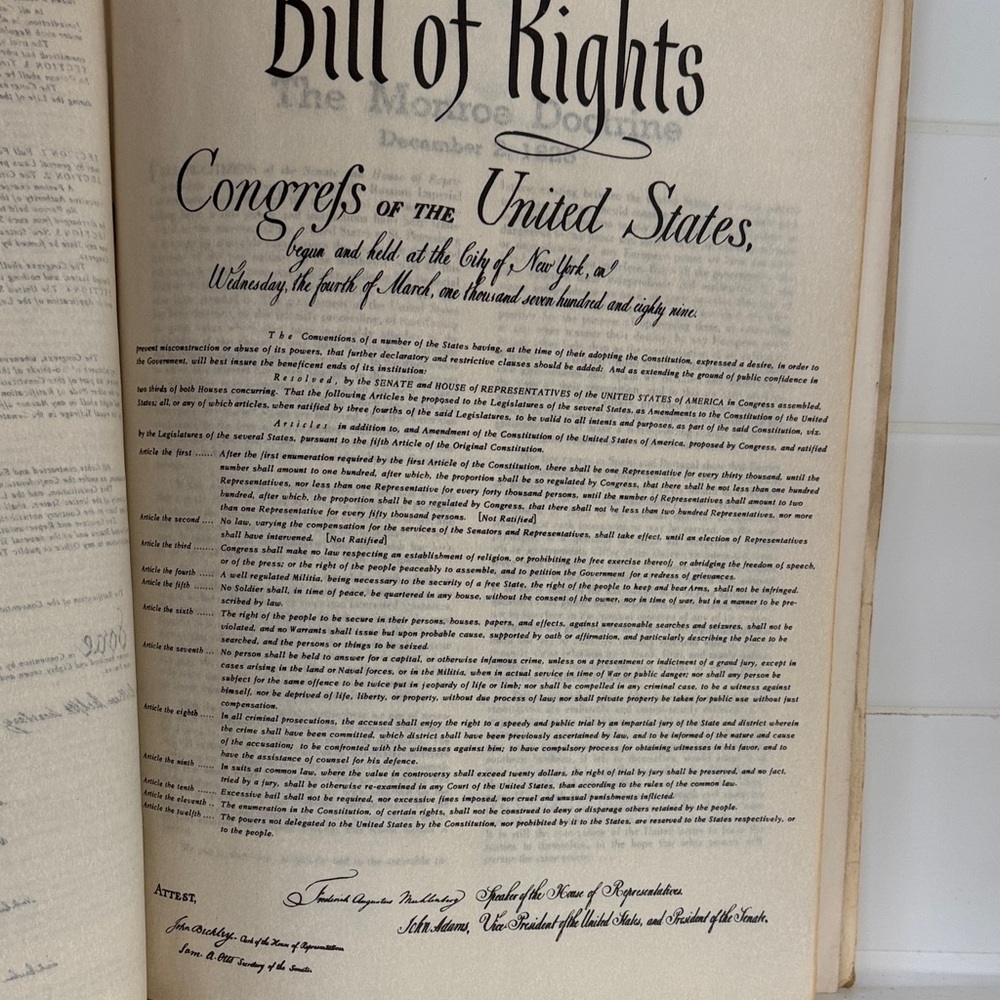 Bill of Rights
Congreſs OF THE United States,
begun and held at the City of New York, on
Wednesday, the fourth of March, one thousand seven hundred and eighty nine.
The Conventions of a number of the States having, at the time of their adopting the Constitution, expressed a desire, in order to
prevent misconstruction or abuse of its powers, that further declaratory and restrictive clauses should be added: And as extending the ground of public confidence in
the Government, will best insure the beneficent ends of its institution:
Resolved, by the SENATE and HOUSE of REPRESENTATIVES of the UNITED STATES of AMERICA in Congress assembled,
two thirds of both Houses concurring. That the following Articles be proposed to the Legislatures of the several States, as Amendments to the Constitution of the United
States; all, or any of which articles, when ratified by three fourths of the said Legislatures, to be valid to all intents and purposes, as part of the said Constitution, viz.
Articles in addition to, and Amendment of the Constitution of the United States of America, proposed by Congress, and ratified
by the Legislatures of the several States, pursuant to the fifth Article of the Original Constitution.
Article the first ...... After the first enumeration required by the first Article of the Constitution, there shall be one Representative for every thirty thousand, until the
number shall amount to one hundred, after which, the proportion shall be so regulated by Congress, that there shall be not less than one hundred
Representatives, nor less than one Representative for every forty thousand persons, until the number of Representatives shall amount to two
hundred, after which, the proportion shall be so regulated by Congress, that there shall not be less than two hundred Representatives, nor more
than one Representative for every fifty thousand persons. [Not Ratified]
Article the second .... No law, varying the compensation for the services of the Senators and Representatives, shall take effect, until an election of Representatives
shall have intervened. [Not Ratified]
Article the third ....... Congress shall make no law respecting an establishment of religion, or prohibiting the free exercise thereof; or abridging the freedom of speech,
or of the press; or the right of the people peaceably to assemble, and to petition the Government for a redress of grievances.
Article the fourth ..... A well regulated Militia, being necessary to the security of a free State, the right of the people to keep and bear Arms, shall not be infringed.
Article the fifth ...... No Soldier shall, in time of peace, be quartered in any house, without the consent of the owner, nor in time of war, but in a manner to be pre-
scribed by law.
Article the sixth ..... The right of the people to be secure in their persons, houses, papers, and effects, against unreasonable searches and seizures, shall not be
violated, and no Warrants shall issue but upon probable cause, supported by oath or affirmation, and particularly describing the place to be
searched, and the persons or things to be seized.
Article the seventh ... No person shall be held to answer for a capital, or otherwise infamous crime, unless on a presentment or indictment of a grand jury, except in
cases arising in the land or Naval forces, or in the Militia, when in actual service in time of War or public danger; nor shall any person be
subject for the same offence to be twice put in jeopardy of life or limb; nor shall be compelled in any criminal case, to be a witness against
himself, nor be deprived of life, liberty, or property, without due process of law; nor shall private property be taken for public use without just
compensation.
Article the eighth ..... In all criminal prosecutions, the accused shall enjoy the right to a speedy and public trial by an impartial jury of the State and district wherein
the crime shall have been committed, which district shall have been previously ascertained by law, and to be informed of the nature and cause
of the accusation; to be confronted with the witnesses against him; to have compulsory process for obtaining witnesses in his favor, and to
have the assistance of counsel for his defence.
Article the ninth ...... In suits at common law, where the value in controversy shall exceed twenty dollars, the right of trial by jury shall be preserved, and no fact,
tried by a jury, shall be otherwise re-examined in any Court of the United States, than according to the rules of the common law.
Article the tenth ...... Excessive bail shall not be required, nor excessive fines imposed, nor cruel and unusual punishments inflicted.
Article the eleventh .. The enumeration in the Constitution, of certain rights, shall not be construed to deny or disparage others retained by the people.
Article the twelfth .... The powers not delegated to the United States by the Constitution, nor prohibited by it to the States, are reserved to the States respectively, or
to the people.
ATTEST,
Frederick Augustus Muhlenberg Speaker of the House of Representatives.
John Adams, Vice-President of the United States, and President of the Senate.
John Beckley. Clerk of the House of Representatives
Sam. A. Otis Secretary of the Senate.